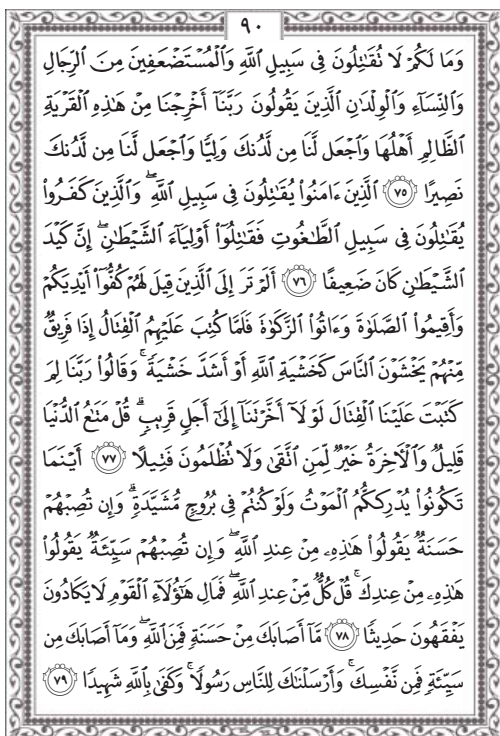 ٩٠
وَمَا لَكُمْ لَا تُقَٰتِلُونَ فِى سَبِيلِ ٱللَّهِ وَٱلْمُسْتَضْعَفِينَ مِنَ ٱلرِّجَالِ
وَٱلنِّسَآءِ وَٱلْوِلْدَٰنِ ٱلَّذِينَ يَقُولُونَ رَبَّنَآ أَخْرِجْنَا مِنْ هَٰذِهِ ٱلْقَرْيَةِ
ٱلظَّالِمِ أَهْلُهَا وَٱجْعَل لَّنَا مِن لَّدُنكَ وَلِيًّا وَٱجْعَل لَّنَا مِن لَّدُنكَ
نَصِيرًا ﴿٧٥﴾ ٱلَّذِينَ ءَامَنُوا۟ يُقَٰتِلُونَ فِى سَبِيلِ ٱللَّهِ ۖ وَٱلَّذِينَ كَفَرُوا۟
يُقَٰتِلُونَ فِى سَبِيلِ ٱلطَّٰغُوتِ فَقَٰتِلُوٓا۟ أَوْلِيَآءَ ٱلشَّيْطَٰنِ ۖ إِنَّ كَيْدَ
ٱلشَّيْطَٰنِ كَانَ ضَعِيفًا ﴿٧٦﴾ أَلَمْ تَرَ إِلَى ٱلَّذِينَ قِيلَ لَهُمْ كُفُّوٓا۟ أَيْدِيَكُمْ
وَأَقِيمُوا۟ ٱلصَّلَوٰةَ وَءَاتُوا۟ ٱلزَّكَوٰةَ فَلَمَّا كُتِبَ عَلَيْهِمُ ٱلْقِتَالُ إِذَا فَرِيقٌ
مِّنْهُمْ يَخْشَوْنَ ٱلنَّاسَ كَخَشْيَةِ ٱللَّهِ أَوْ أَشَدَّ خَشْيَةً ۚ وَقَالُوا۟ رَبَّنَا لِمَ
كَتَبْتَ عَلَيْنَا ٱلْقِتَالَ لَوْلَآ أَخَّرْتَنَآ إِلَىٰٓ أَجَلٍ قَرِيبٍ ۗ قُلْ مَتَٰعُ ٱلدُّنْيَا
قَلِيلٌ وَٱلْءَاخِرَةُ خَيْرٌ لِّمَنِ ٱتَّقَىٰ وَلَا تُظْلَمُونَ فَتِيلًا ﴿٧٧﴾ أَيْنَمَا
تَكُونُوا۟ يُدْرِككُّمُ ٱلْمَوْتُ وَلَوْ كُنتُمْ فِى بُرُوجٍ مُّشَيَّدَةٍ ۗ وَإِن تُصِبْهُمْ
حَسَنَةٌ يَقُولُوا۟ هَٰذِهِۦ مِنْ عِندِ ٱللَّهِ ۖ وَإِن تُصِبْهُمْ سَيِّئَةٌ يَقُولُوا۟
هَٰذِهِۦ مِنْ عِندِكَ ۚ قُلْ كُلٌّ مِّنْ عِندِ ٱللَّهِ ۖ فَمَالِ هَٰٓؤُلَآءِ ٱلْقَوْمِ لَا يَكَادُونَ
يَفْقَهُونَ حَدِيثًا ﴿٧٨﴾ مَّآ أَصَابَكَ مِنْ حَسَنَةٍ فَمِنَ ٱللَّهِ ۖ وَمَآ أَصَابَكَ مِن
سَيِّئَةٍ فَمِن نَّفْسِكَ ۚ وَأَرْسَلْنَٰكَ لِلنَّاسِ رَسُولًا ۚ وَكَفَىٰ بِٱللَّهِ شَهِيدًا ﴿٧٩﴾